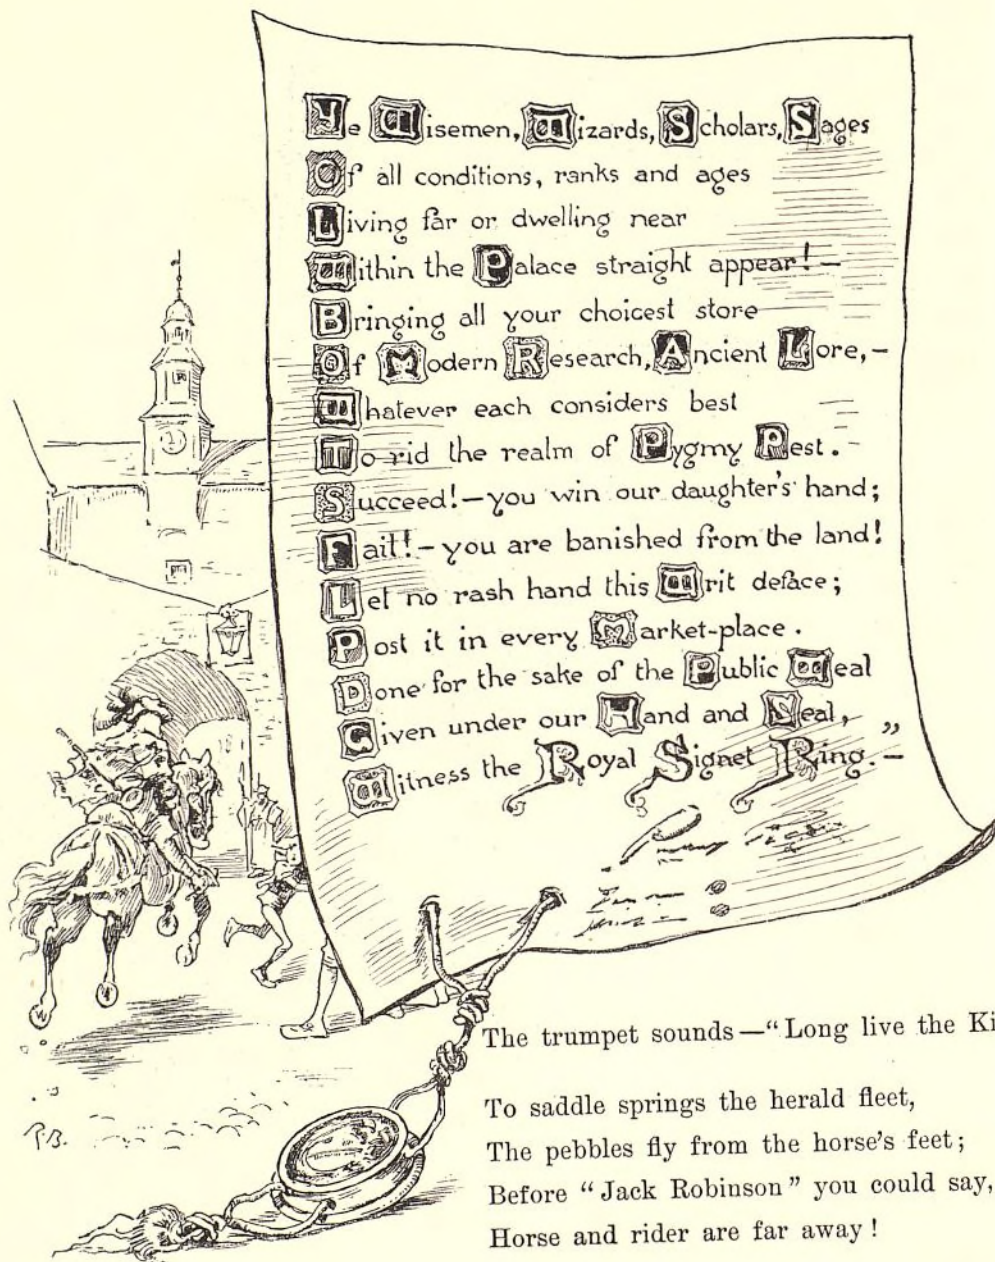 Ye Wisemen, Wizards, Scholars, Sages
Of all conditions, ranks and ages
Living far or dwelling near
Within the Palace straight appear!—
Bringing all your choicest store
Of Modern Research, Ancient Lore,—
Whatever each considers best
To rid the realm of Pygmy Pest.
Succeed!—you win our daughter's hand;
Fail!—you are banished from the land!
Let no rash hand this Writ deface;
Post it in every Market-place.
Done for the sake of the Public Weal
Given under our Hand and Seal,
Witness the Royal Signet Ring.”—
The trumpet sounds—“Long live the Ki
To saddle springs the herald fleet,
The pebbles fly from the horse's feet;
Before “Jack Robinson” you could say,
Horse and rider are far away!
R.B.